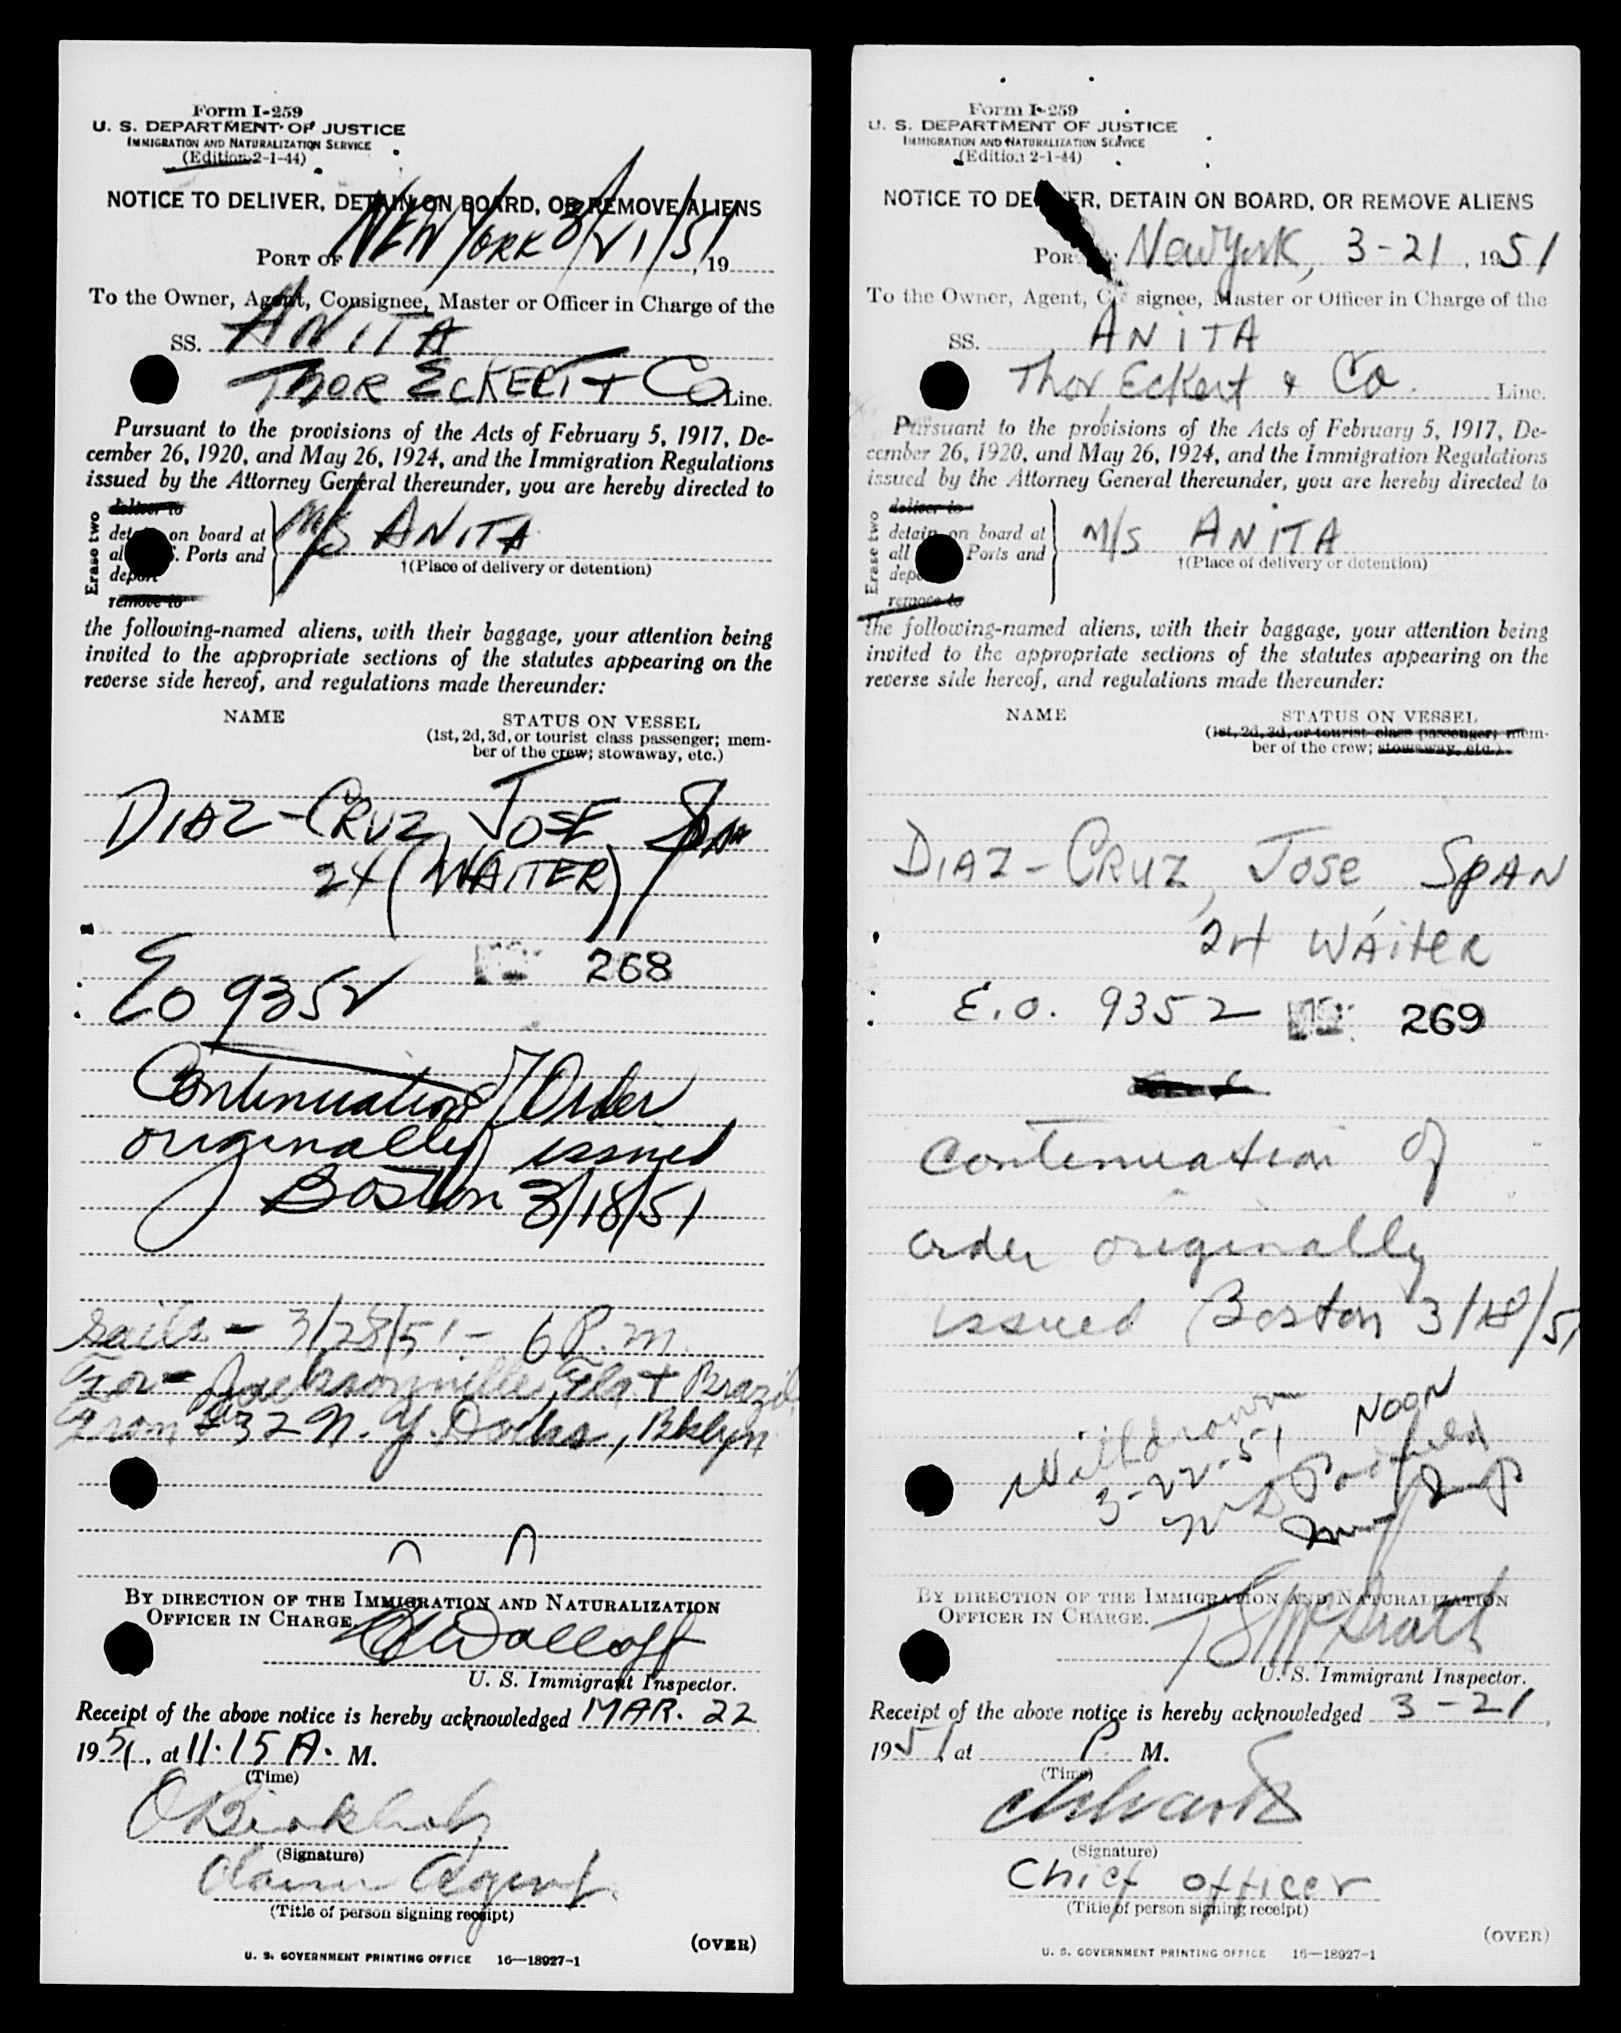 Form I-259
U. S. DEPARTMENT OF JUSTICE
IMMIGRATION AND NATURALIZATION SERVICE
(Edition 2-1-44)
NOTICE TO DELIVER, DETAIN ON BOARD, OR REMOVE ALIENS
PORT OF NEW YORK 3/21/51, 19
To the Owner, Agent, Consignee, Master or Officer in Charge of the
SS. ANITA
THOR ECKERT + CO Line.
Pursuant to the provisions of the Acts of February 5, 1917, De-
cember 26, 1920, and May 26, 1924, and the Immigration Regulations
issued by the Attorney General thereunder, you are hereby directed to
Erase two
deliver to
detain on board at
all U.S. Ports and
deport
remove to
M/S ANITA
†(Place of delivery or detention)
the following-named aliens, with their baggage, your attention being
invited to the appropriate sections of the statutes appearing on the
reverse side hereof, and regulations made thereunder:
NAME
STATUS ON VESSEL
(1st, 2d, 3d, or tourist class passenger; mem-
ber of the crew; stowaway, etc.)
DIAZ-CRUZ, JOSE Span
24 (WAITER)
268
EO 9352
Continuation of Order
originally issued
Boston 3/18/51
sails - 3/23/51 - 6 P.m.
For - Jacksonville, Fla + Brazil
From #32 N. Y. Docks, Bklyn
BY DIRECTION OF THE IMMIGRATION AND NATURALIZATION
OFFICER IN CHARGE.
U. S. Immigrant Inspector.
Receipt of the above notice is hereby acknowledged MAR. 22
1951, at 11.15 A. M.
(Time)
(Signature)
Agent.
(Title of person signing receipt)
(OVER)
U. S. GOVERNMENT PRINTING OFFICE 16—18927-1
Form I-259
U. S. DEPARTMENT OF JUSTICE
IMMIGRATION AND NATURALIZATION SERVICE
(Edition 2-1-44)
NOTICE TO DELIVER, DETAIN ON BOARD, OR REMOVE ALIENS
PORT OF New York, 3-21, 1951
To the Owner, Agent, Consignee, Master or Officer in Charge of the
SS. ANITA
Thor, Eckert & Co. Line.
Pursuant to the provisions of the Acts of February 5, 1917, De-
cember 26, 1920, and May 26, 1924, and the Immigration Regulations
issued by the Attorney General thereunder, you are hereby directed to
Erase two
deliver to
detain on board at
all U.S. Ports and
deport
remove to
M/S ANITA
†(Place of delivery or detention)
the following-named aliens, with their baggage, your attention being
invited to the appropriate sections of the statutes appearing on the
reverse side hereof, and regulations made thereunder:
NAME
STATUS ON VESSEL
(1st, 2d, 3d, or tourist class passenger; mem-
ber of the crew; stowaway, etc.)
DIAZ-CRUZ, JOSE, SPAN
24 WAITER
E.O. 9352 269
Continuation of
order originally
issued Boston 3/18/51
Withdrawn
3-22-51 NOON
BY DIRECTION OF THE IMMIGRATION AND NATURALIZATION
OFFICER IN CHARGE.
U. S. Immigrant Inspector.
Receipt of the above notice is hereby acknowledged 3-21,
1951 at P. M.
(Time)
(Signature)
Chief officer
(Title of person signing receipt)
(OVER)
U. S. GOVERNMENT PRINTING OFFICE 16—18927-1